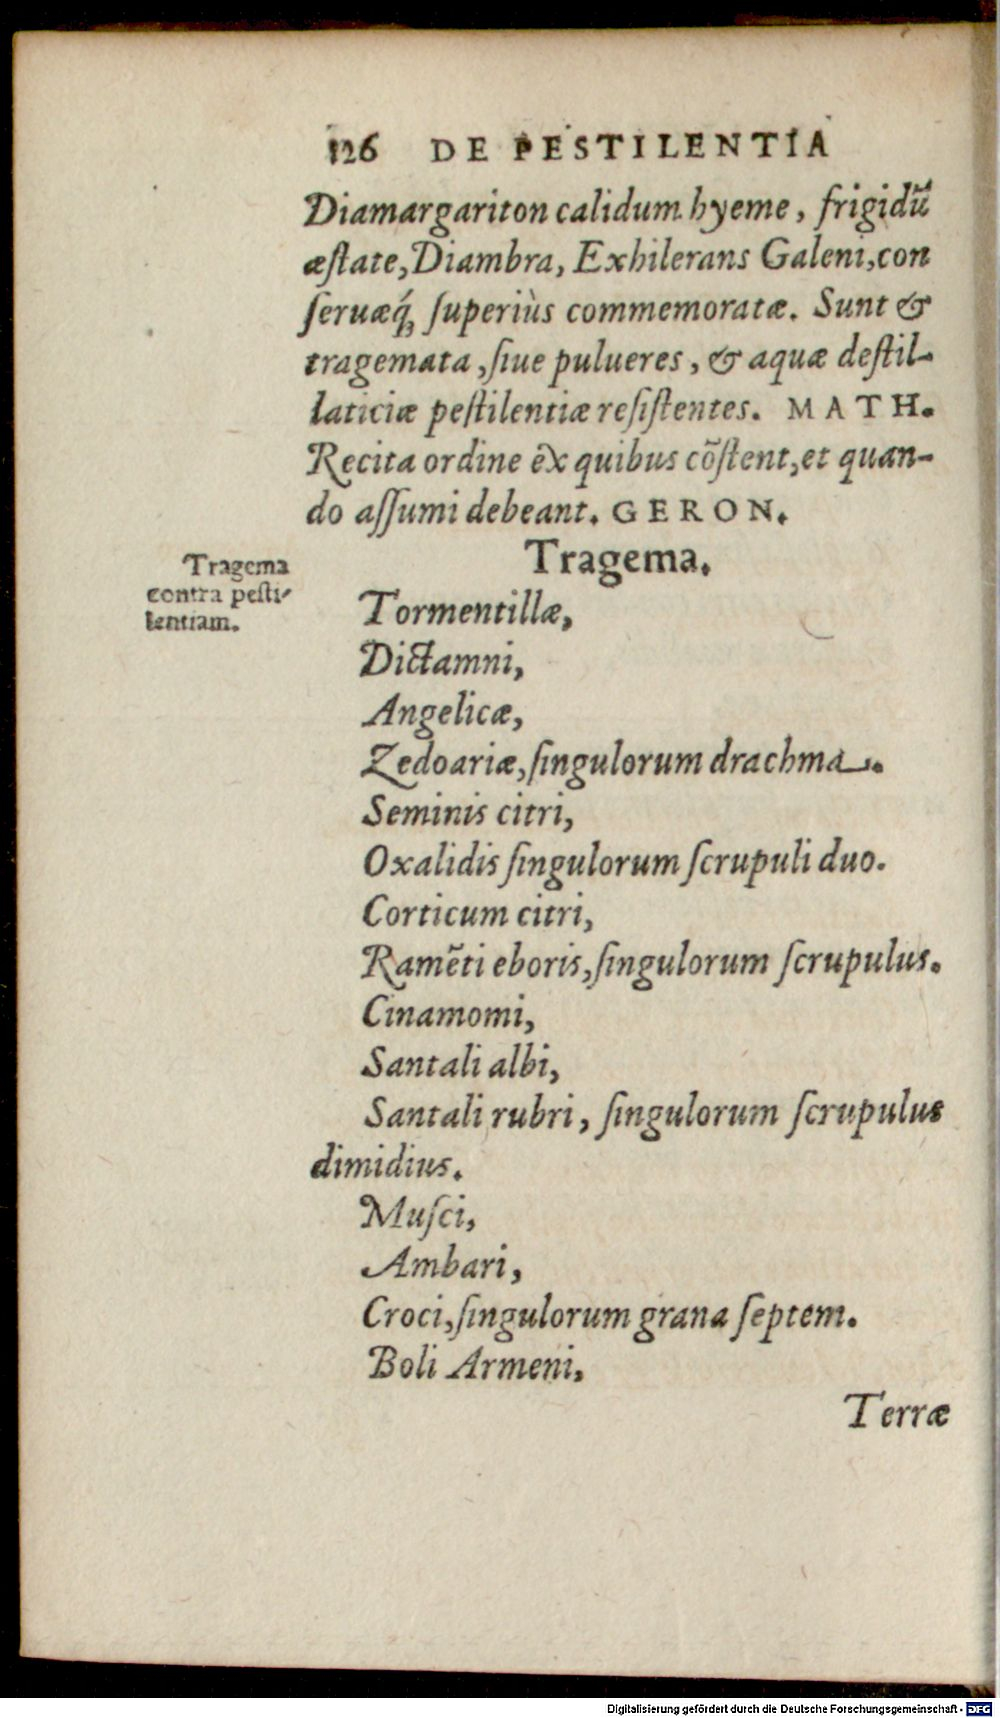 126 DE PESTILENTIA
Diamargariton calidum hyeme, frigidũ
æſtate, Diambra, Exhilerans Galeni, con
ſeruæq́; ſuperiùs commemoratæ. Sunt &
tragemata, ſiue pulueres, & aquæ deſtil-
laticiæ peſtilentiæ reſiſtentes. MATH.
Recita ordine ex quibus cõſtent, et quan-
do aſſumi debeant. GERON.
Tragema.
Tragema
contra peſti-
lentiam.
Tormentillæ,
Dictamni,
Angelicæ,
Zedoariæ, ſingulorum drachma.
Seminis citri,
Oxalidis ſingulorum ſcrupuli duo.
Corticum citri,
Ramẽti eboris, ſingulorum ſcrupulus.
Cinamomi,
Santali albi,
Santali rubri, ſingulorum ſcrupulus
dimidius.
Muſci,
Ambari,
Croci, ſingulorum grana ſeptem.
Boli Armeni,
Terræ
Digitalisierung gefördert durch die Deutsche Forschungsgemeinschaft - DFG